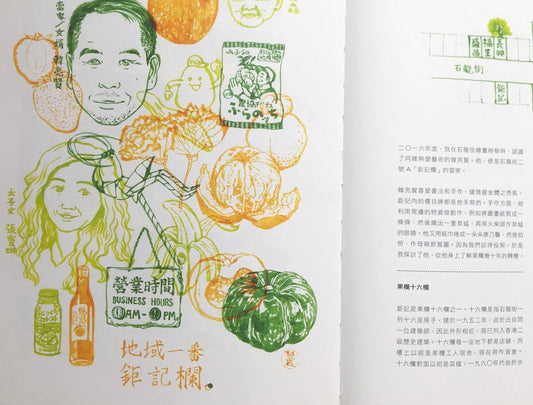 當家／女婿 韓亮賢
太子女
JAふらの
ふらのっち
營業時間
BUSINESS HOURS
10AM-9PM.
地域一番
鉅記欄。
盛昌
福生
長興
石龍街
鉅記
二〇一六年底，我在石龍街邊畫榕樹時，認識
了同樣熱愛藝術的韓亮賢。他，便是石龍街二
號A「鉅記欄」的當家。
韓亮賢喜愛書法和手作，鍾情瘦金體之秀氣，
鉅記內的價目牌都是他手寫的。手作方面，他
利用周邊的物資做創作，例如將圖書紙剪成一
條條，然後織出一隻草蜢，再用火柴頭作草蜢
的眼睛。他又用紙巾捲成一朵朵康乃馨，然後拍
照，作母親節賀圖。因為我們談得投契，於是
我採訪了他，從他身上了解果欄幾十年的轉變。
果欄十六欄
鉅記是果欄十六欄之一。十六欄是指石龍街一
列十六座房子，建於一九五二年，由於出自同
一位建築師，因此外形相近，現已列入香港二
級歷史建築。十六欄每一座地下都是店舖，而
樓上以前是果欄工人宿舍，現在用作貨倉。
十六欄對面以前是菜檔，一九六〇年代由於水